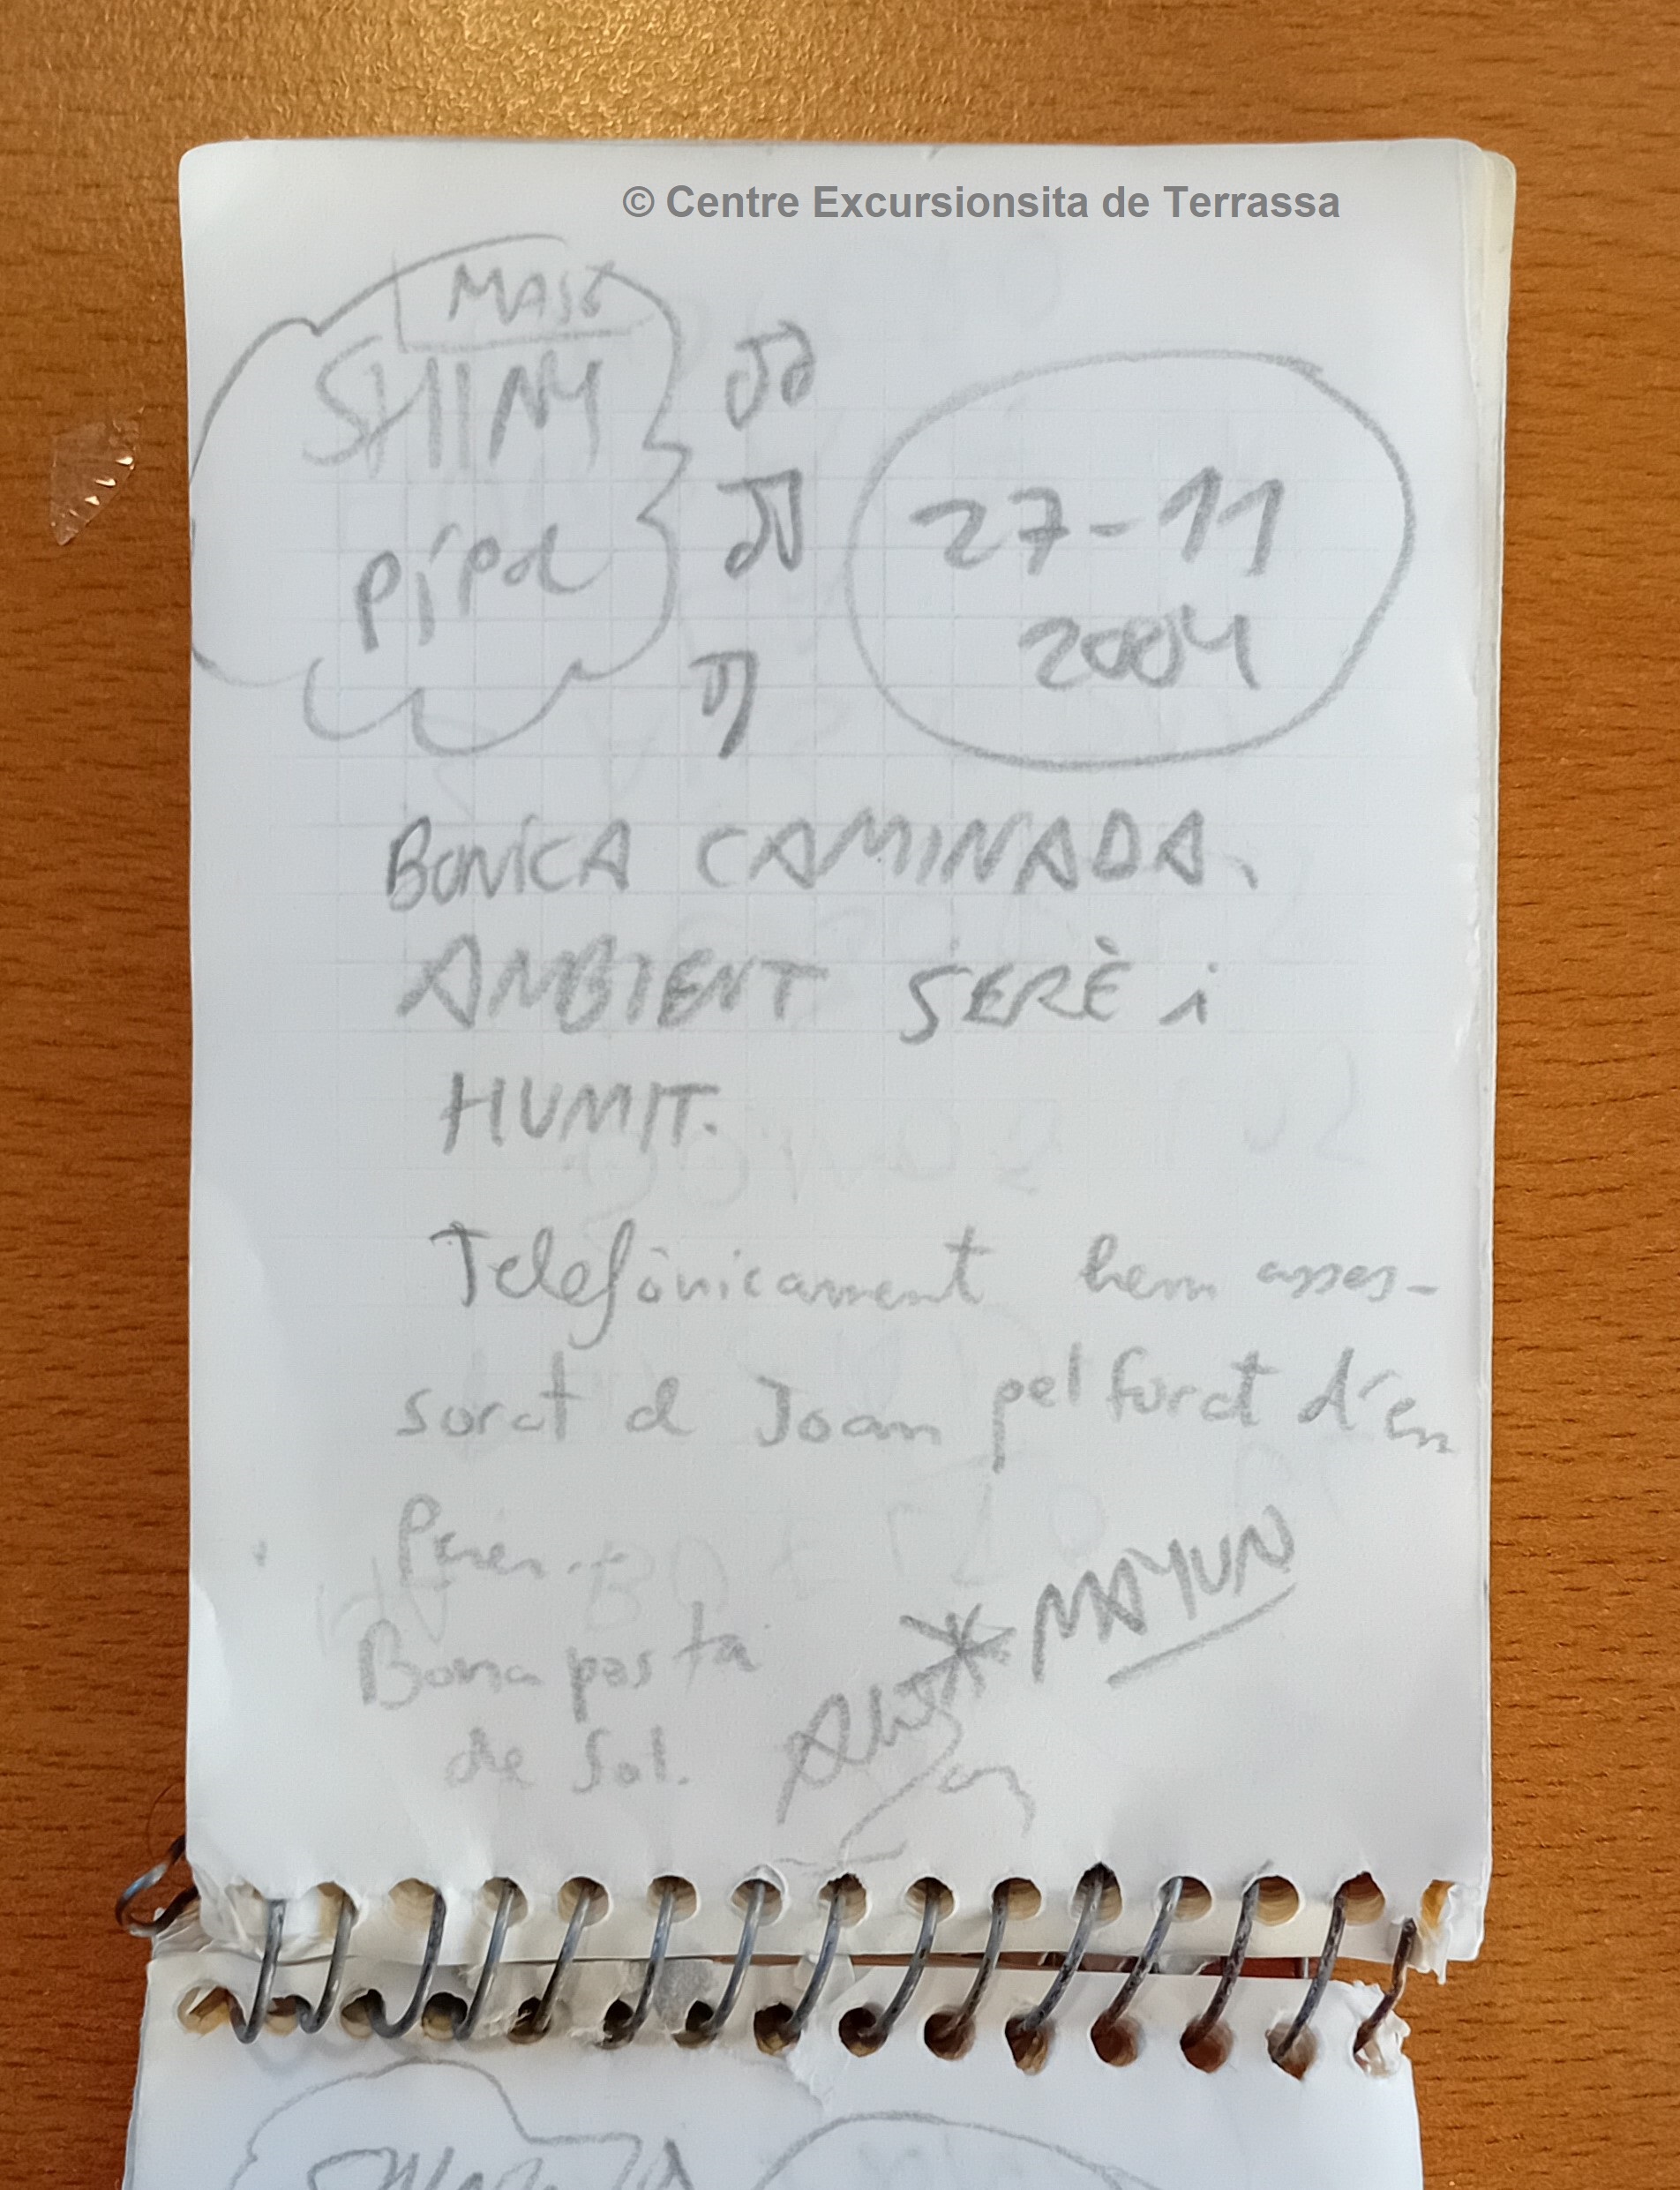 © Centre Excursionsita de Terrassa
SHINY
pipa
27-11
2004
BONICA CAMINADA.
AMBIENT SERÈ i
HUMIT.
Telefònicament hem asses-
sorat a Joan pel forat d'en
Bona posta
de Sol.
MAYUN